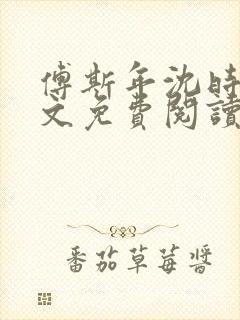 傅斯年沈時
文免費閱讀
番茄草莓醬